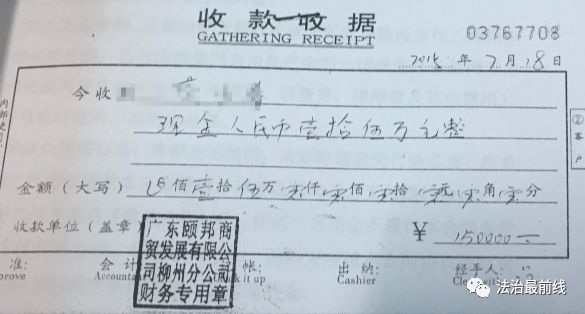 收款收据
GATHERING RECEIPT
03767708
2015年7月18日
今收
现金人民币壹拾伍万元整
金额（大写）佰壹拾伍万零仟零佰零拾零元零角零分
收款单位（盖章）
¥ 150000-
广东颐邦商
贸发展有限公
司柳州分公司
财务专用章
准: 会计 帐: 出纳: 经手人:
prove Accounta k it up Cashier Cle
②客户
法治最前线